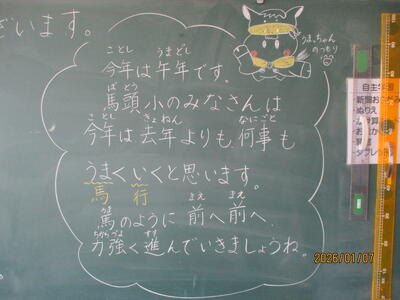 ざいます。
ことし うまどし
今年は午年です。
ばとう
馬頭小のみなさんは
ことし きょねん なにごと
今年は去年よりも何事も
うまくいくと思います。
馬 行
うま まえ まえ
馬のように 前へ前へ
ちからづよ すす
力強く進んでいきましょうね。
のつもり
自主学習
・ぬりえ
2026/01/07